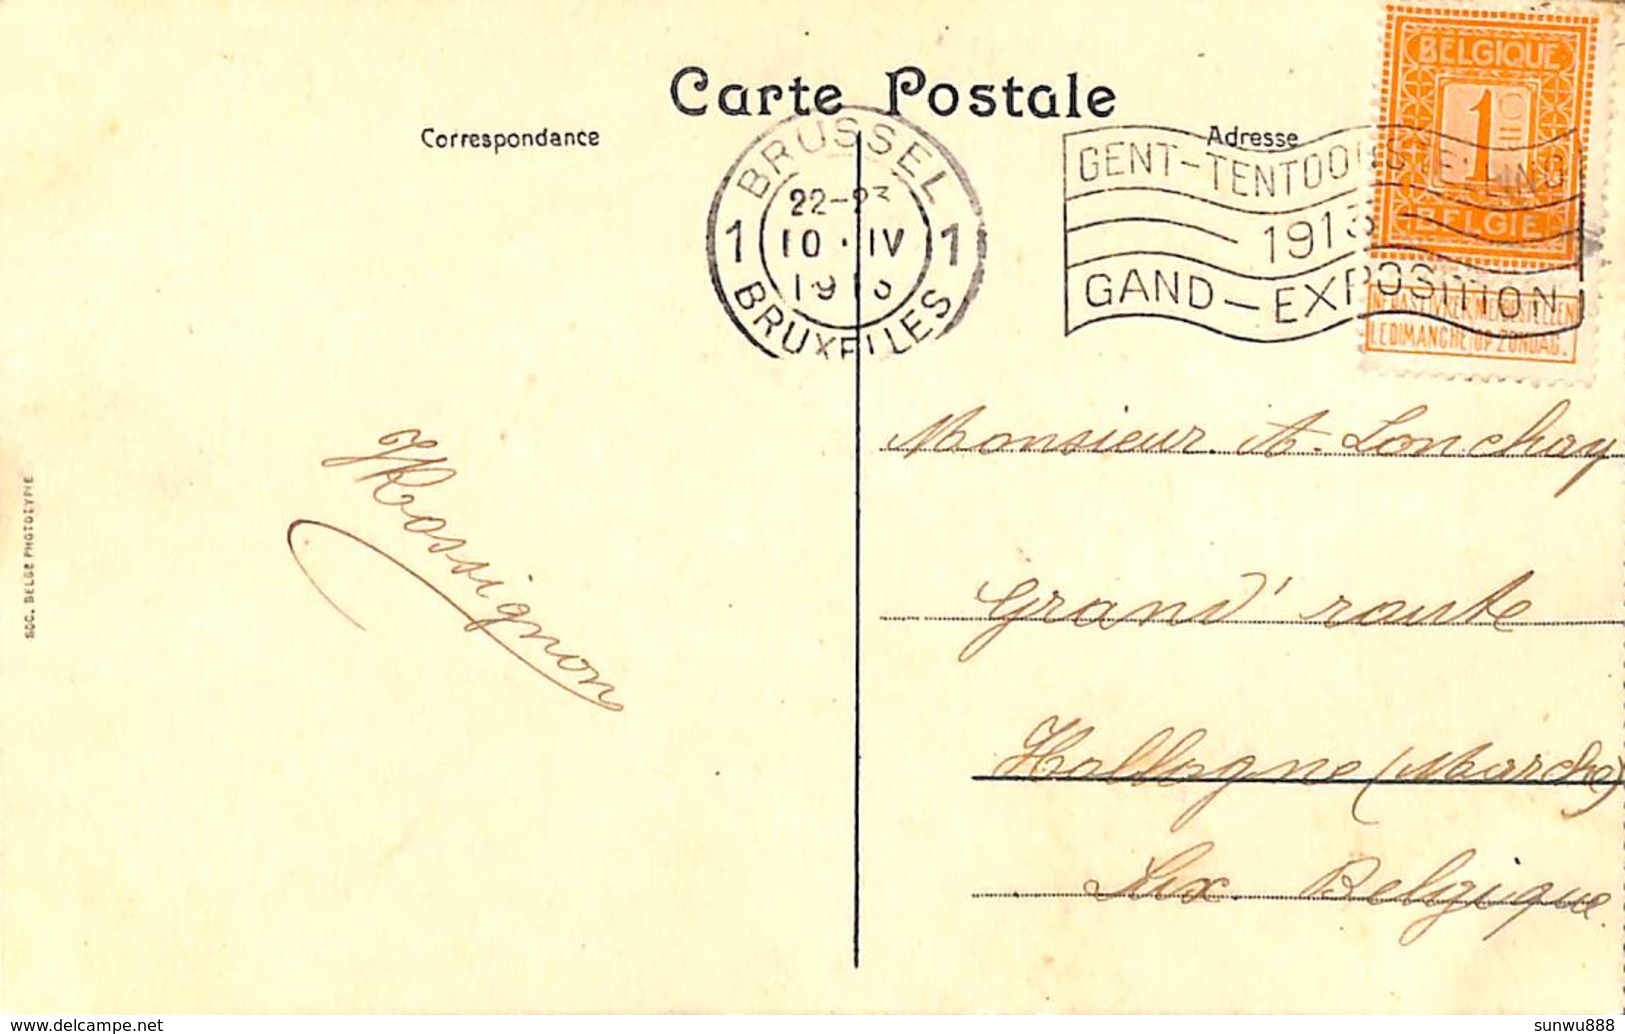 Carte Postale
Correspondance
Adresse
BRUSSEL
22-23
1 10 · IV 1
1913
BRUXELLES
GENT-TENTOONSTELLING
1913
GAND-EXPOSITION
BELGIQUE
1c
BELGIË
NE PAS LIVRER NIET BESTELLEN
LE DIMANCHE OP ZONDAG.
Monsieur. A. Lonchay
Grand' route
Hollogne (Marche)
Lux. Belgique.
Rossignon
SOC. BELGE PHOTOTYPIE
delcampe.net
sunwu888